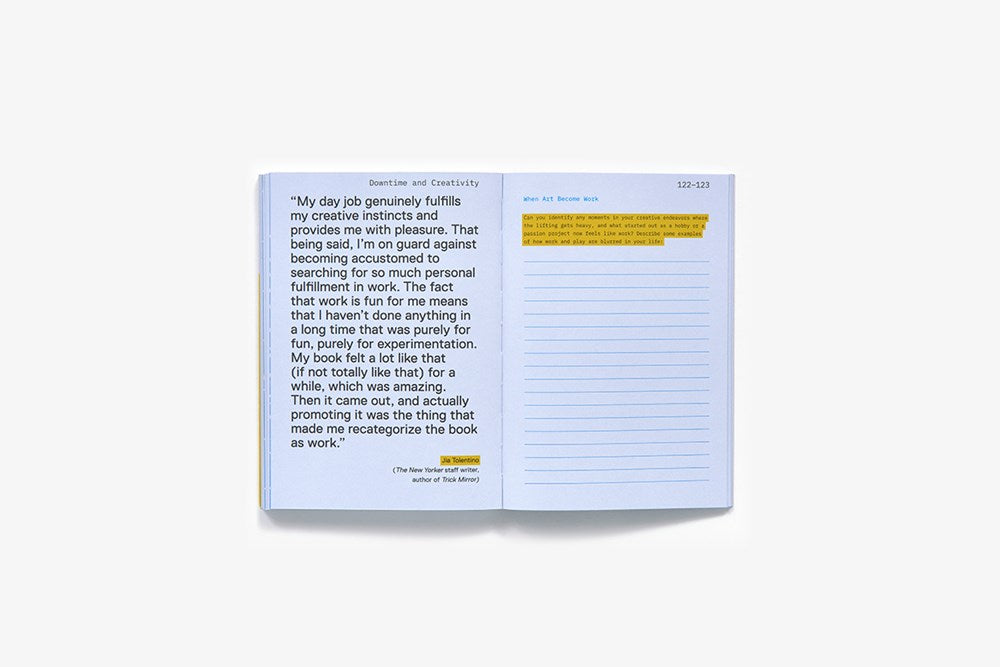 Downtime and Creativity
“My day job genuinely fulfills
my creative instincts and
provides me with pleasure. That
being said, I’m on guard against
becoming accustomed to
searching for so much personal
fulfillment in work. The fact
that work is fun for me means
that I haven’t done anything in
a long time that was purely for
fun, purely for experimentation.
My book felt a lot like that
(if not totally like that) for a
while, which was amazing.
Then it came out, and actually
promoting it was the thing that
made me recategorize the book
as work.”
Jia Tolentino
(The New Yorker staff writer,
author of Trick Mirror)
122–123
When Art Become Work
Can you identify any moments in your creative endeavors where
the lifting gets heavy, and what started out as a hobby or a
passion project now feels like work? Describe some examples
of how work and play are blurred in your life: